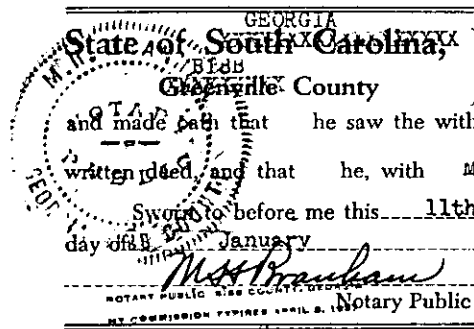 GEORGIA
State of South Carolina,
BIBB
Greenville County
and made oath that he saw the with
written deed, and that he, with M
Sworn to before me this 11th
day of January
M S H Branham
NOTARY PUBLIC, BIBB COUNTY, GEORGIA
Notary Public
MY COMMISSION EXPIRES APRIL 8,
NOTARY
PUBLIC
COUNTY